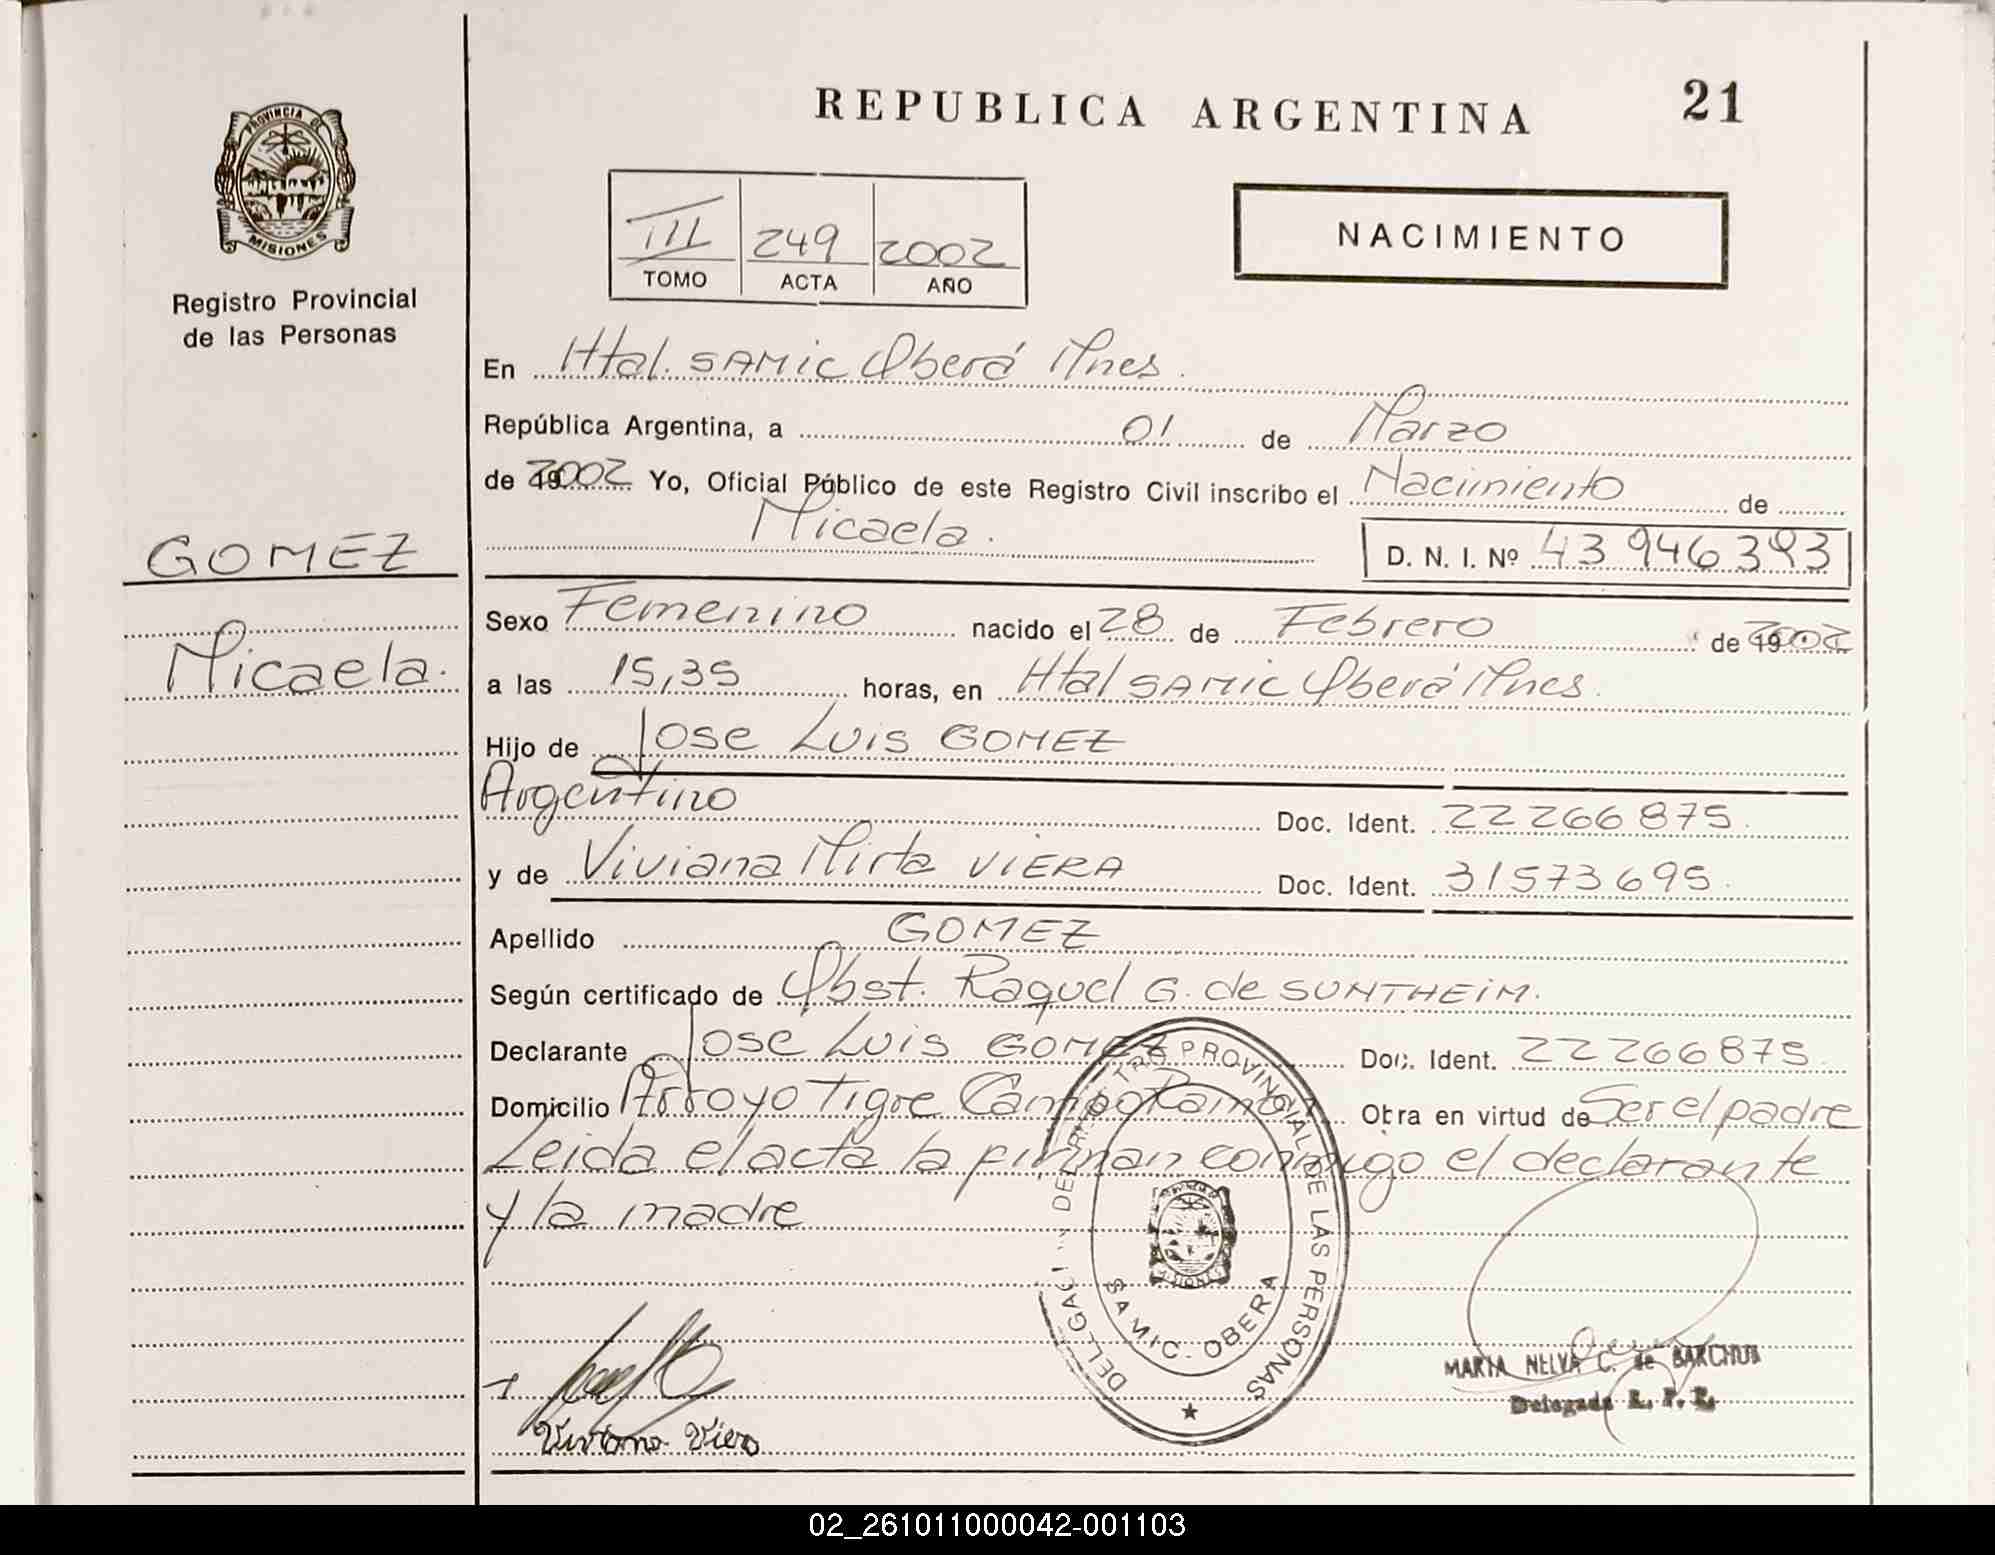 REPUBLICA ARGENTINA
21
PROVINCIA DE
MISIONES
Registro Provincial
de las Personas
III 249 2002
TOMO ACTA AÑO
NACIMIENTO
En Htal. SAMIC Oberá Mnes.
República Argentina, a 01 de Marzo
de 2002 Yo, Oficial Público de este Registro Civil inscribo el Nacimiento de
Micaela. D. N. I. Nº 43 946 393
GOMEZ
Micaela.
Sexo Femenino nacido el 28 de Febrero de 2002
a las 15,35 horas, en Htal SAMIC Oberá Mnes.
Hijo de Jose Luis GOMEZ
Argentino Doc. Ident. 22 266 875.
y de Viviana Mirta VIERA Doc. Ident. 31 573 695.
Apellido GOMEZ
Según certificado de Obst. Raquel G. de SUNTHEIM.
Declarante Jose Luis GOMEZ Doc. Ident. 22 266 875.
Domicilio Arroyo Tigre Campo Ramon Obra en virtud de Ser el padre
Leida el acta la firman conmigo el declarante
y la madre
DELEGACION DEL REGISTRO PROVINCIAL DE LAS PERSONAS
SAMIC - OBERA
MISIONES
MARIA NELVA C. de BARCHUK
Delegada R. P. P.
Viviana Viera
02_261011000042-001103